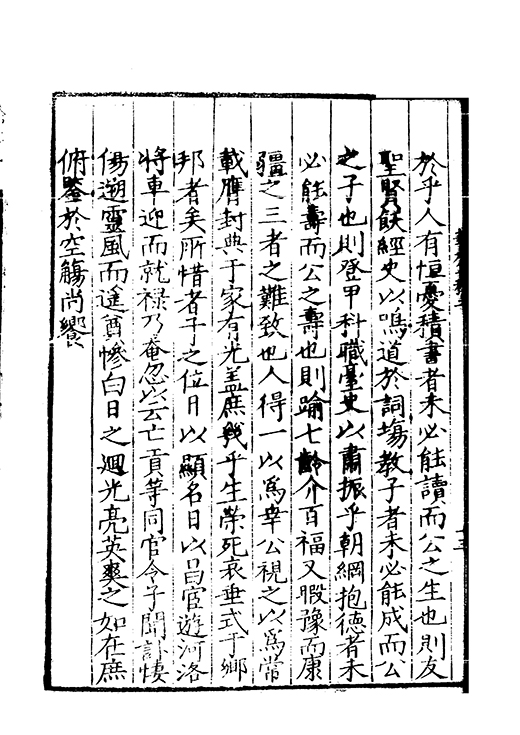 於乎人有恒憂積書者未必能讀而公之生也則友
聖賢飫經史以鳴道於詞塲教子者未必能成而公
之子也則登甲科職臺史以肅振乎朝綱抱德者未
必能壽而公之壽也則踰七齡介百福又暇豫而康
疆之三者之難致也人得一以為幸公視之以為常
載膺封典于家有光盖庶幾乎生榮死哀垂式于鄉
邦者矣所惜者子之位日以顯名日以昌官遊河洛
將車迎而就禄乃奄忽以云亡貢等同官令子聞訃悽
傷遡靈風而遥酹慘白日之迴光亮英爽之如在庶
俯鑒於空觴尚饗